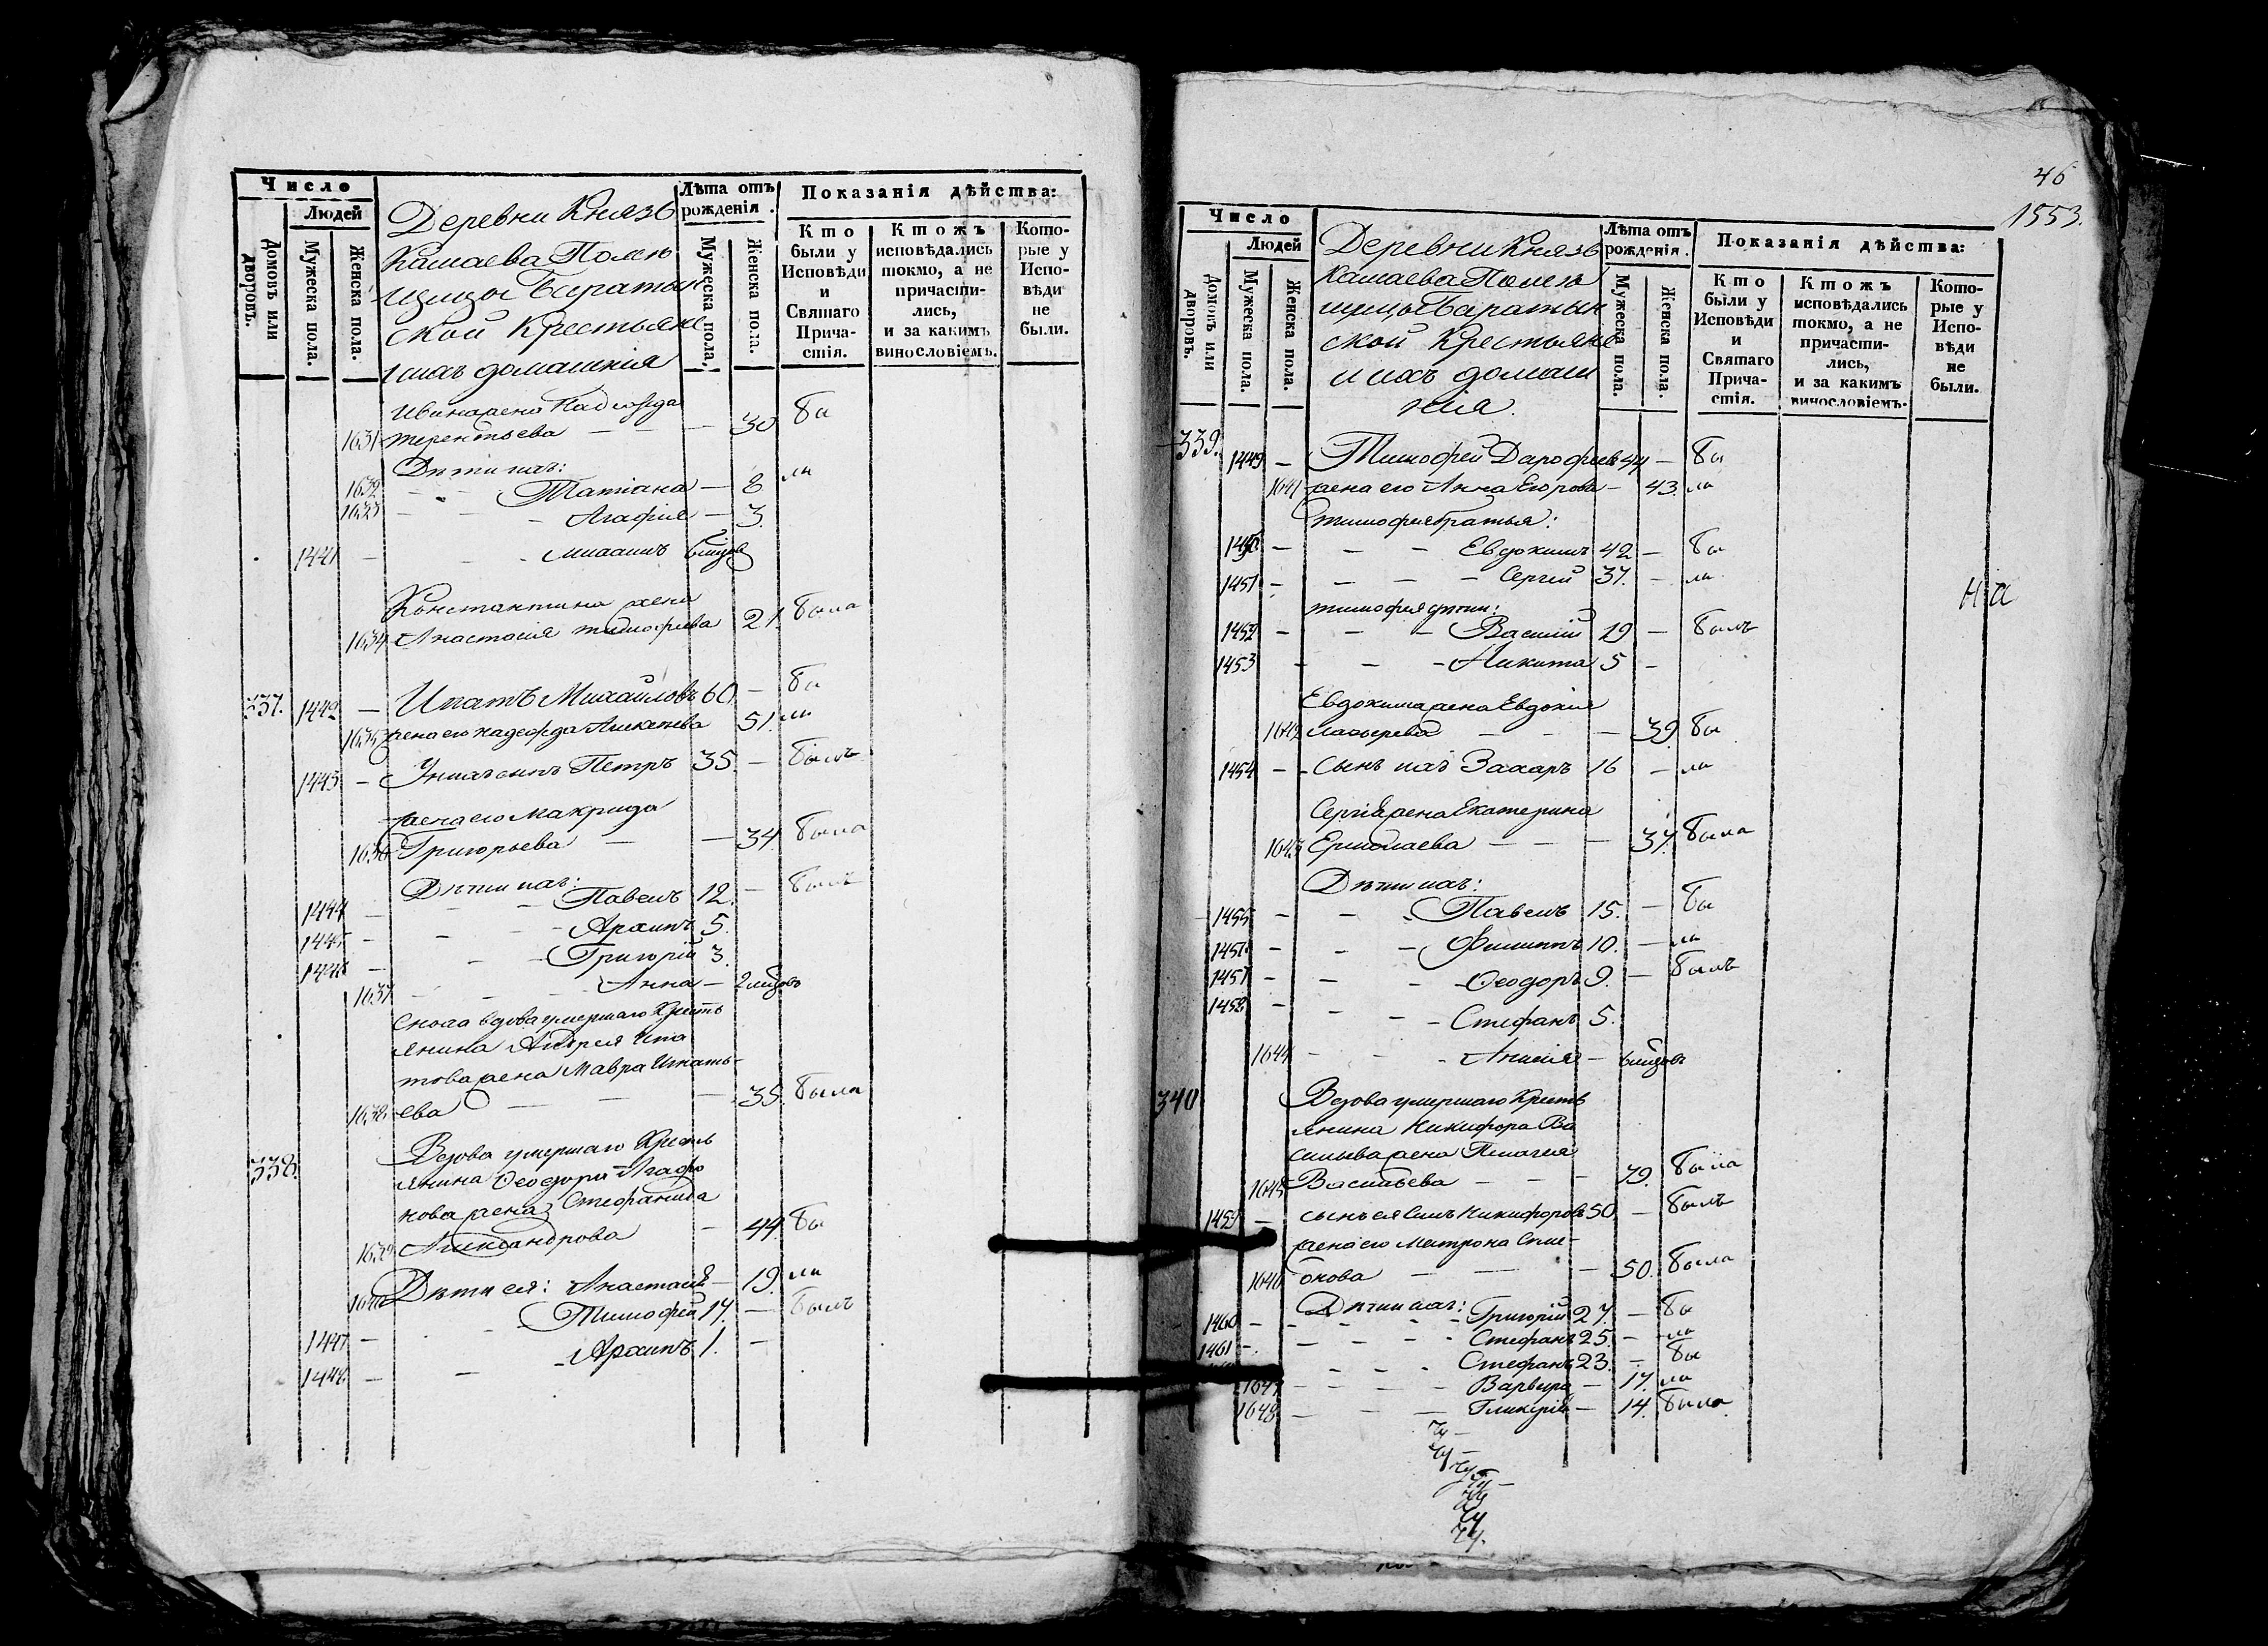 Число
Людей
Домовъ или дворовъ.
Мужеска пола.
Женска пола.
Деревни Князь
Камаева Помѣ
щицы Баратын
ской Крестьяне
и ихъ домашнія
Лѣта отъ рожденія.
Мужеска пола.
Женска пола.
Показанія дѣйства:
Кто были у Исповѣди и Святаго Причастія.
Ктожъ исповѣдались токмо, а не причастились, и за какимъ винословіемъ.
Которые у Исповѣди не были.
Ивана жена Надежда
1631 Терентьева — — — 30 бы
Дѣти ихъ:
1632 — — Татіана — 8 ли
1633 — — — Агафія — 3.
1441 — — - Михаилъ 6 мѣсцов
Константина жена
1634 Анастасія Тимофѣева 21. была
337. 1442 — Ипатъ Михайловъ 60 — бы
1635 жена его Надежда Алексѣева 51. ли
1443 — У нихъ сынъ Петръ 35. — былъ
жена его Макрида
1636 Григорьева — — 34 была
Дѣти ихъ:
1444 — - — Павелъ 12. — былъ
1445 — - - - Архипъ 5.
1446 — - — Григорій 3.
1637 — - - Анна — 2 мѣсцовъ
Сноха вдова умершаго Кресть
янина Андрея Ипа
това жена Мавра Игнать-
1638 ева — — — 35. была
338. Вдова умершаго Кресть
янина Ѳеодора Агафо
нова жена Стефанида
1639 Александрова — 44. бы
1640 Дѣти ея: Анастасія — 19. ли
1447 — - Тимофей 17. — былъ
1448 — — - Архипъ 1. —
46
1553.
Число
Людей
Домовъ или дворовъ.
Мужеска пола.
Женска пола.
Деревни Князь
Камаева Помѣ
щицы Баратын
ской Крестьяне
и ихъ домаш
нія.
Лѣта отъ рожденія.
Мужеска пола.
Женска пола.
Показанія дѣйства:
Кто были у Исповѣди и Святаго Причастія.
Ктожъ исповѣдались токмо, а не причастились, и за какимъ винословіемъ.
Которые у Исповѣди не были.
339. 1449 — Тимофей Дарофеевъ 44 — бы
1641 жена его Анна Егорова — 43. ли
Тимофея братья:
1450 — — — Евдокимъ 42 — бы
1451 — — — Сергій 37. — ли
На
Тимофея дѣти:
1452 — — — Василій 19 — былъ
1453 - - - Никита 5 -
Евдокима жена Евдокія
1642 Лазырева — — — 39. бы
1454 - - Сынъ ихъ Захаръ 16 — ли
Сергія жена Екатерина
1643 Ермолаева — — — 37. была
Дѣти ихъ:
1455 - - - Павелъ 15. — бы
1456 - - — Филиппъ 10. — ли
1457 - - - Ѳеодоръ 9. — былъ
1458 - - - Стефанъ 5.
1644 - - - Анисія — 6 мѣсцовъ
340 Вдова умершаго Кресть
янина Никифора Ва
сильева жена Пелагея
1645 Васильева — — - 79. была
1459 — сынъ ея Симъ Никифоровъ 50. — былъ
жена его Матрона Спи-
1646 онова — — — 50. была
Дѣти ихъ:
1460 - - - Григорій 27. — бы
1461 - - - Стефанъ 25. — ли
- - - Стефанъ 23. — бы
1647 - - - Варвара — 17. ли
1648 — — Гликерія — 14. была